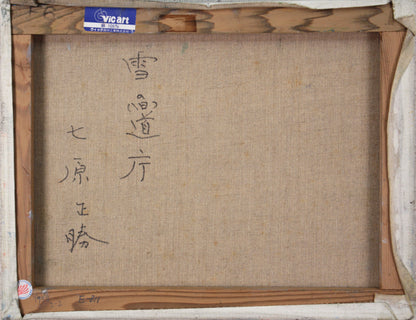 雪の道庁
七原正勝
Vicart